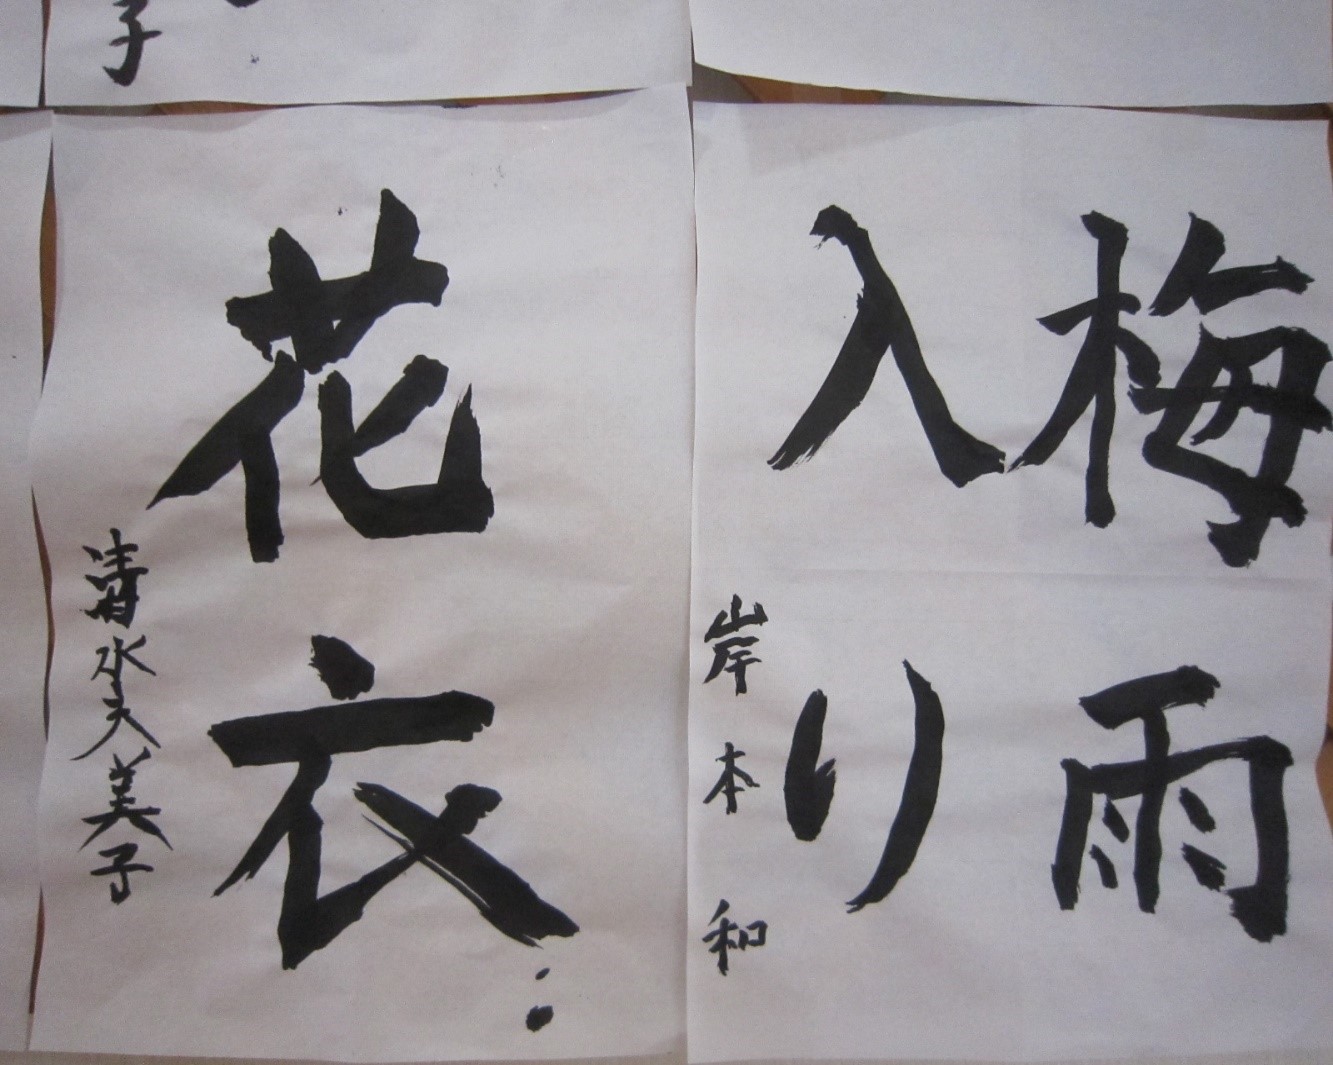 梅雨
入り
岸本 和
花衣
清水久美子
子